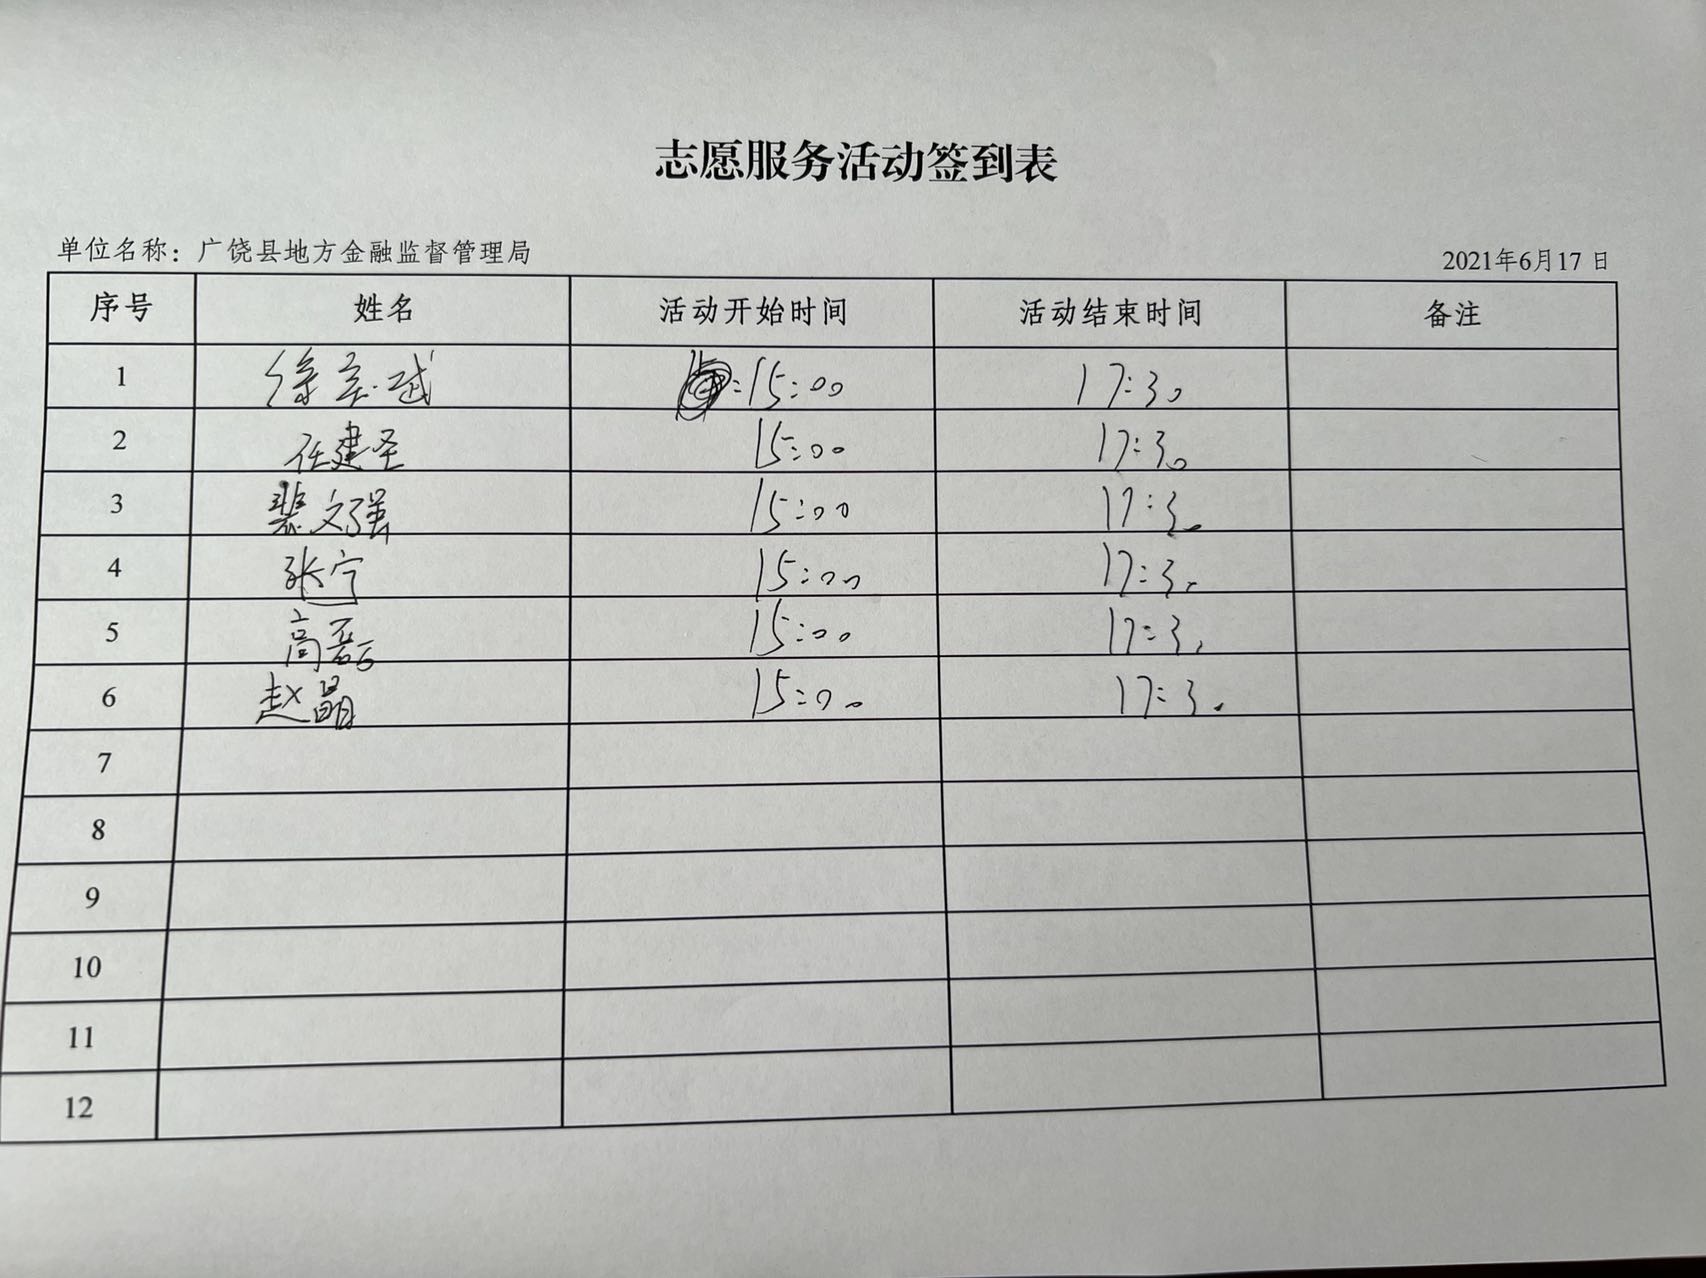 志愿服务活动签到表
单位名称：广饶县地方金融监督管理局 2021年6月17日
序号 姓名 活动开始时间 活动结束时间 备注
1 徐 15:00 17:30
2 任建圣 15:00 17:30
3 裴文强 15:00 17:30
4 张宁 15:00 17:30
5 高磊 15:00 17:30
6 赵晶 15:00 17:30
7
8
9
10
11
12